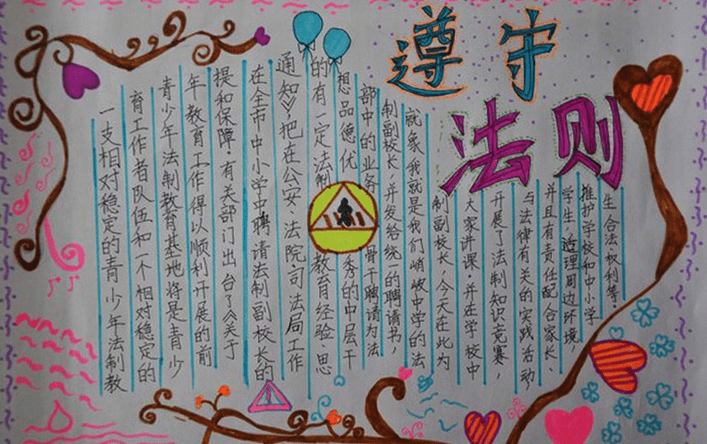 遵守
法则
一支相对稳定的青少年法制教
育工作者队伍和一个相对稳定的
青少年法制教育基地将是青少
年教育工作得以顺利开展的前
提和保障,有关部门出台了《关于
在全市中小学中聘请法制副校长的
通知》,把在公安、法院司法局工作
的有一定法制教育经验、思
想品德优秀的中层干
部中的业务骨干聘请为法
制副校长,并发给统一的聘请书,
就象我就是我们峭岐中学的法
制副校长,今天在此为
大家讲课,并在学校中
开展了法制知识竞赛,
与法律有关的实践活动
并且有责任配合家长、
学生,理周边环境,
护学校和中小学
生合法权利等